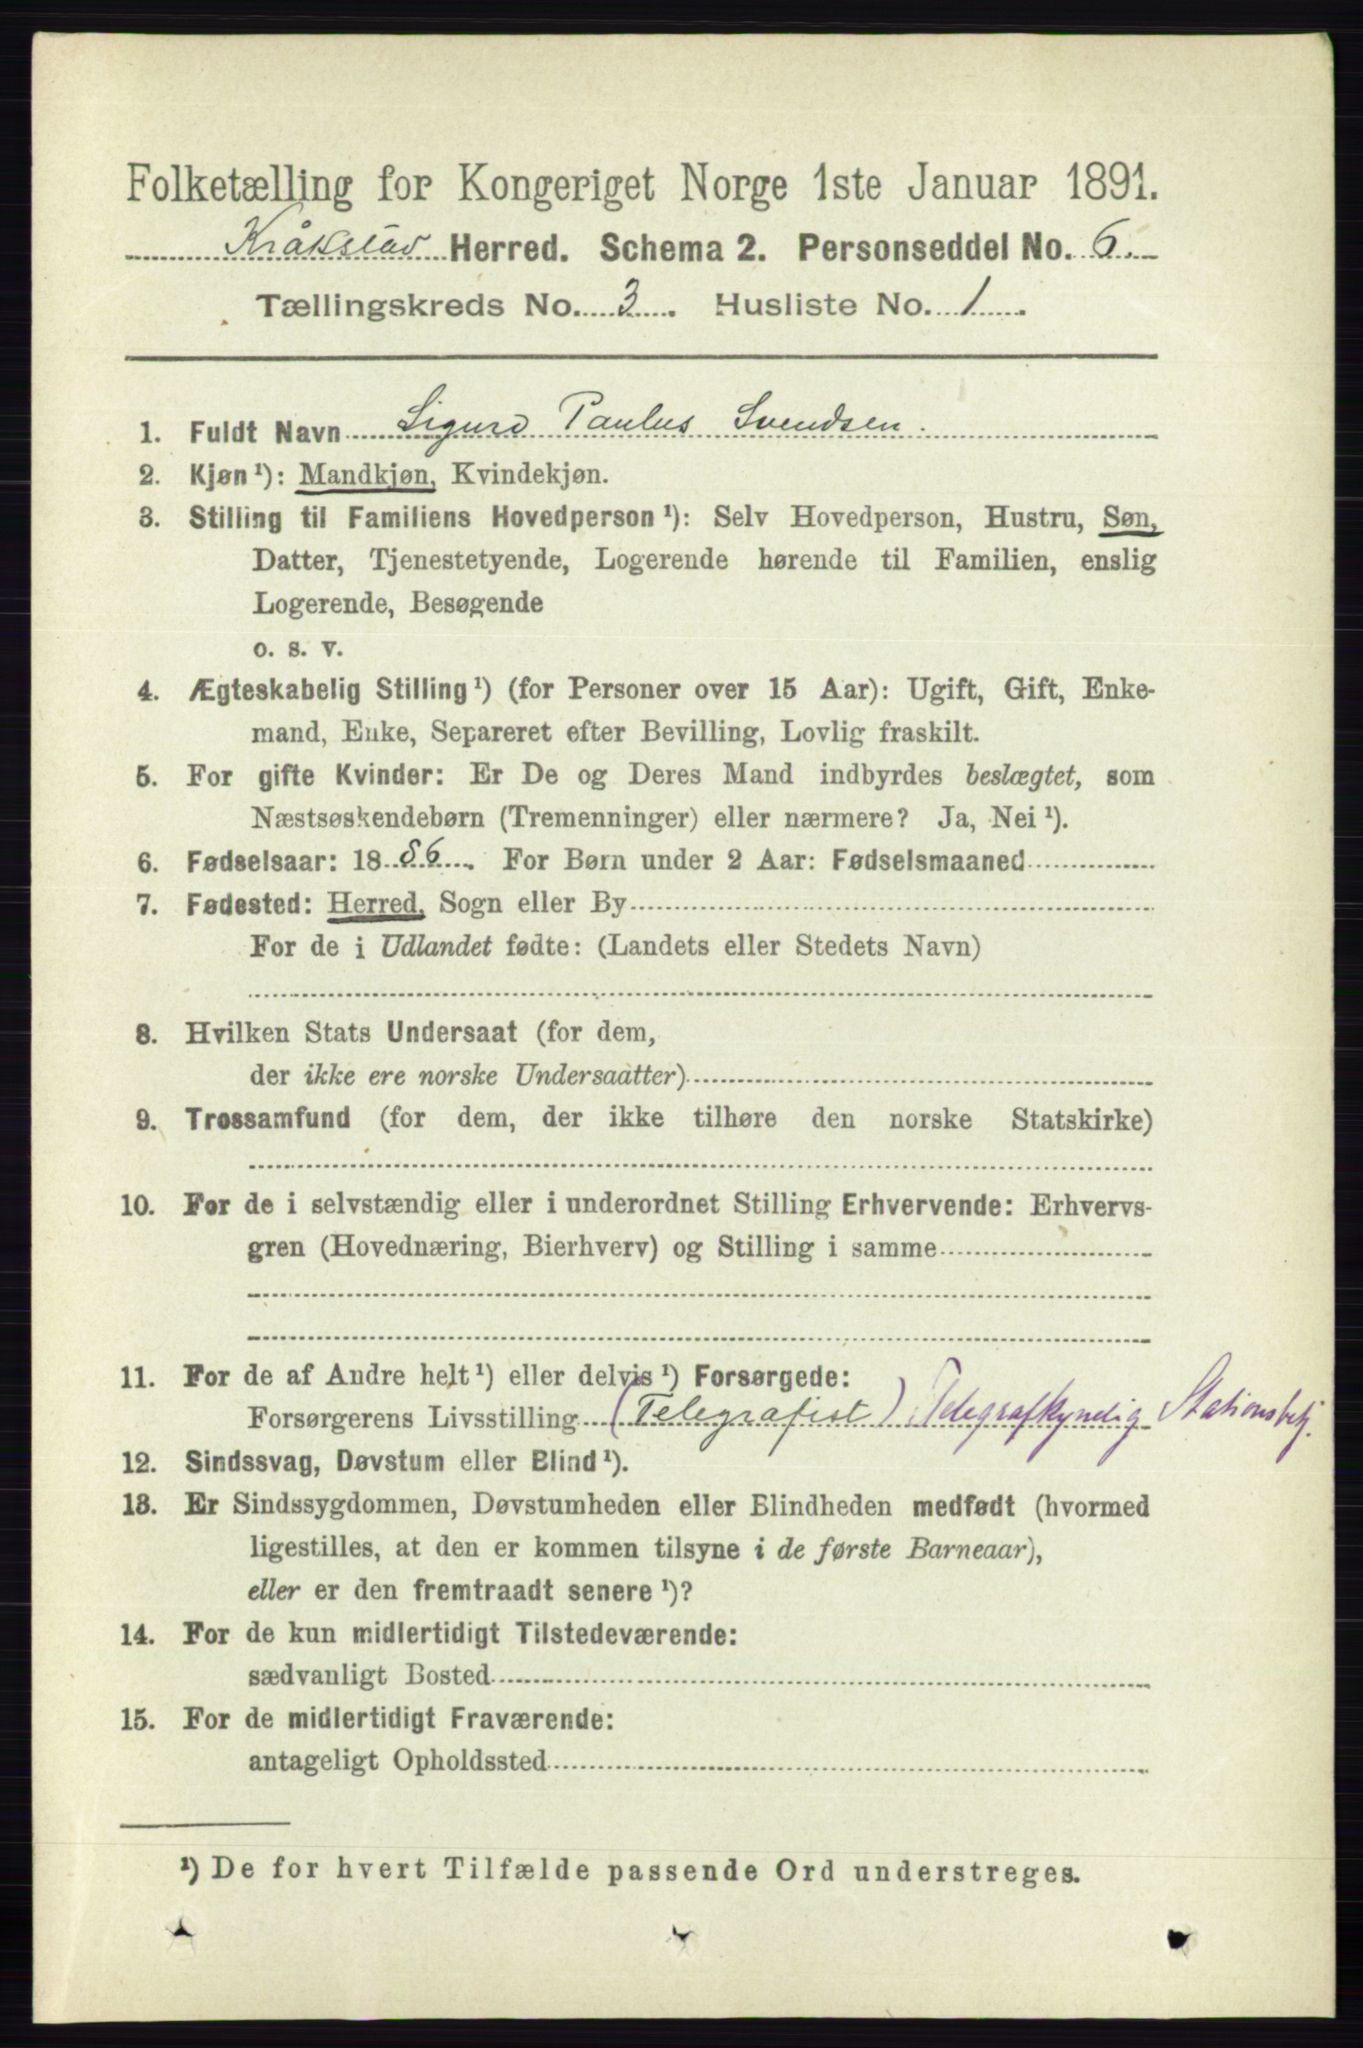 Folketælling for Kongeriget Norge 1ste Januar 1891.
Kråkstad Herred. Schema 2. Personseddel No. 6.
Tællingskreds No. 3. Husliste No. 1.
1. Fuldt Navn Sigurd Paulus Svendsen.
2. Kjøn¹): Mandkjøn, Kvindekjøn.
3. Stilling til Familiens Hovedperson¹): Selv Hovedperson, Hustru, Søn,
Datter, Tjenestetyende, Logerende hørende til Familien, enslig
Logerende, Besøgende
o. s. v.
4. Ægteskabelig Stilling¹) (for Personer over 15 Aar): Ugift, Gift, Enke-
mand, Enke, Separeret efter Bevilling, Lovlig fraskilt.
5. For gifte Kvinder: Er De og Deres Mand indbyrdes beslægtet, som
Næstsøskendebørn (Tremenninger) eller nærmere? Ja, Nei¹).
6. Fødselsaar: 1886. For Børn under 2 Aar: Fødselsmaaned
7. Fødested: Herred, Sogn eller By
For de i Udlandet fødte: (Landets eller Stedets Navn)
8. Hvilken Stats Undersaat (for dem,
der ikke ere norske Undersaatter)
9. Trossamfund (for dem, der ikke tilhøre den norske Statskirke)
10. For de i selvstændig eller i underordnet Stilling Erhvervende: Erhvervs-
gren (Hovednæring, Bierhverv) og Stilling i samme
11. For de af Andre helt¹) eller delvis¹) Forsørgede:
Forsørgerens Livsstilling (Telegrafist) Telegrafkyndig Stationsbetj.
12. Sindssvag, Døvstum eller Blind¹).
13. Er Sindssygdommen, Døvstumheden eller Blindheden medfødt (hvormed
ligestilles, at den er kommen tilsyne i de første Barneaar),
eller er den fremtraadt senere¹)?
14. For de kun midlertidigt Tilstedeværende:
sædvanligt Bosted
15. For de midlertidigt Fraværende:
antageligt Opholdssted
¹) De for hvert Tilfælde passende Ord understreges.